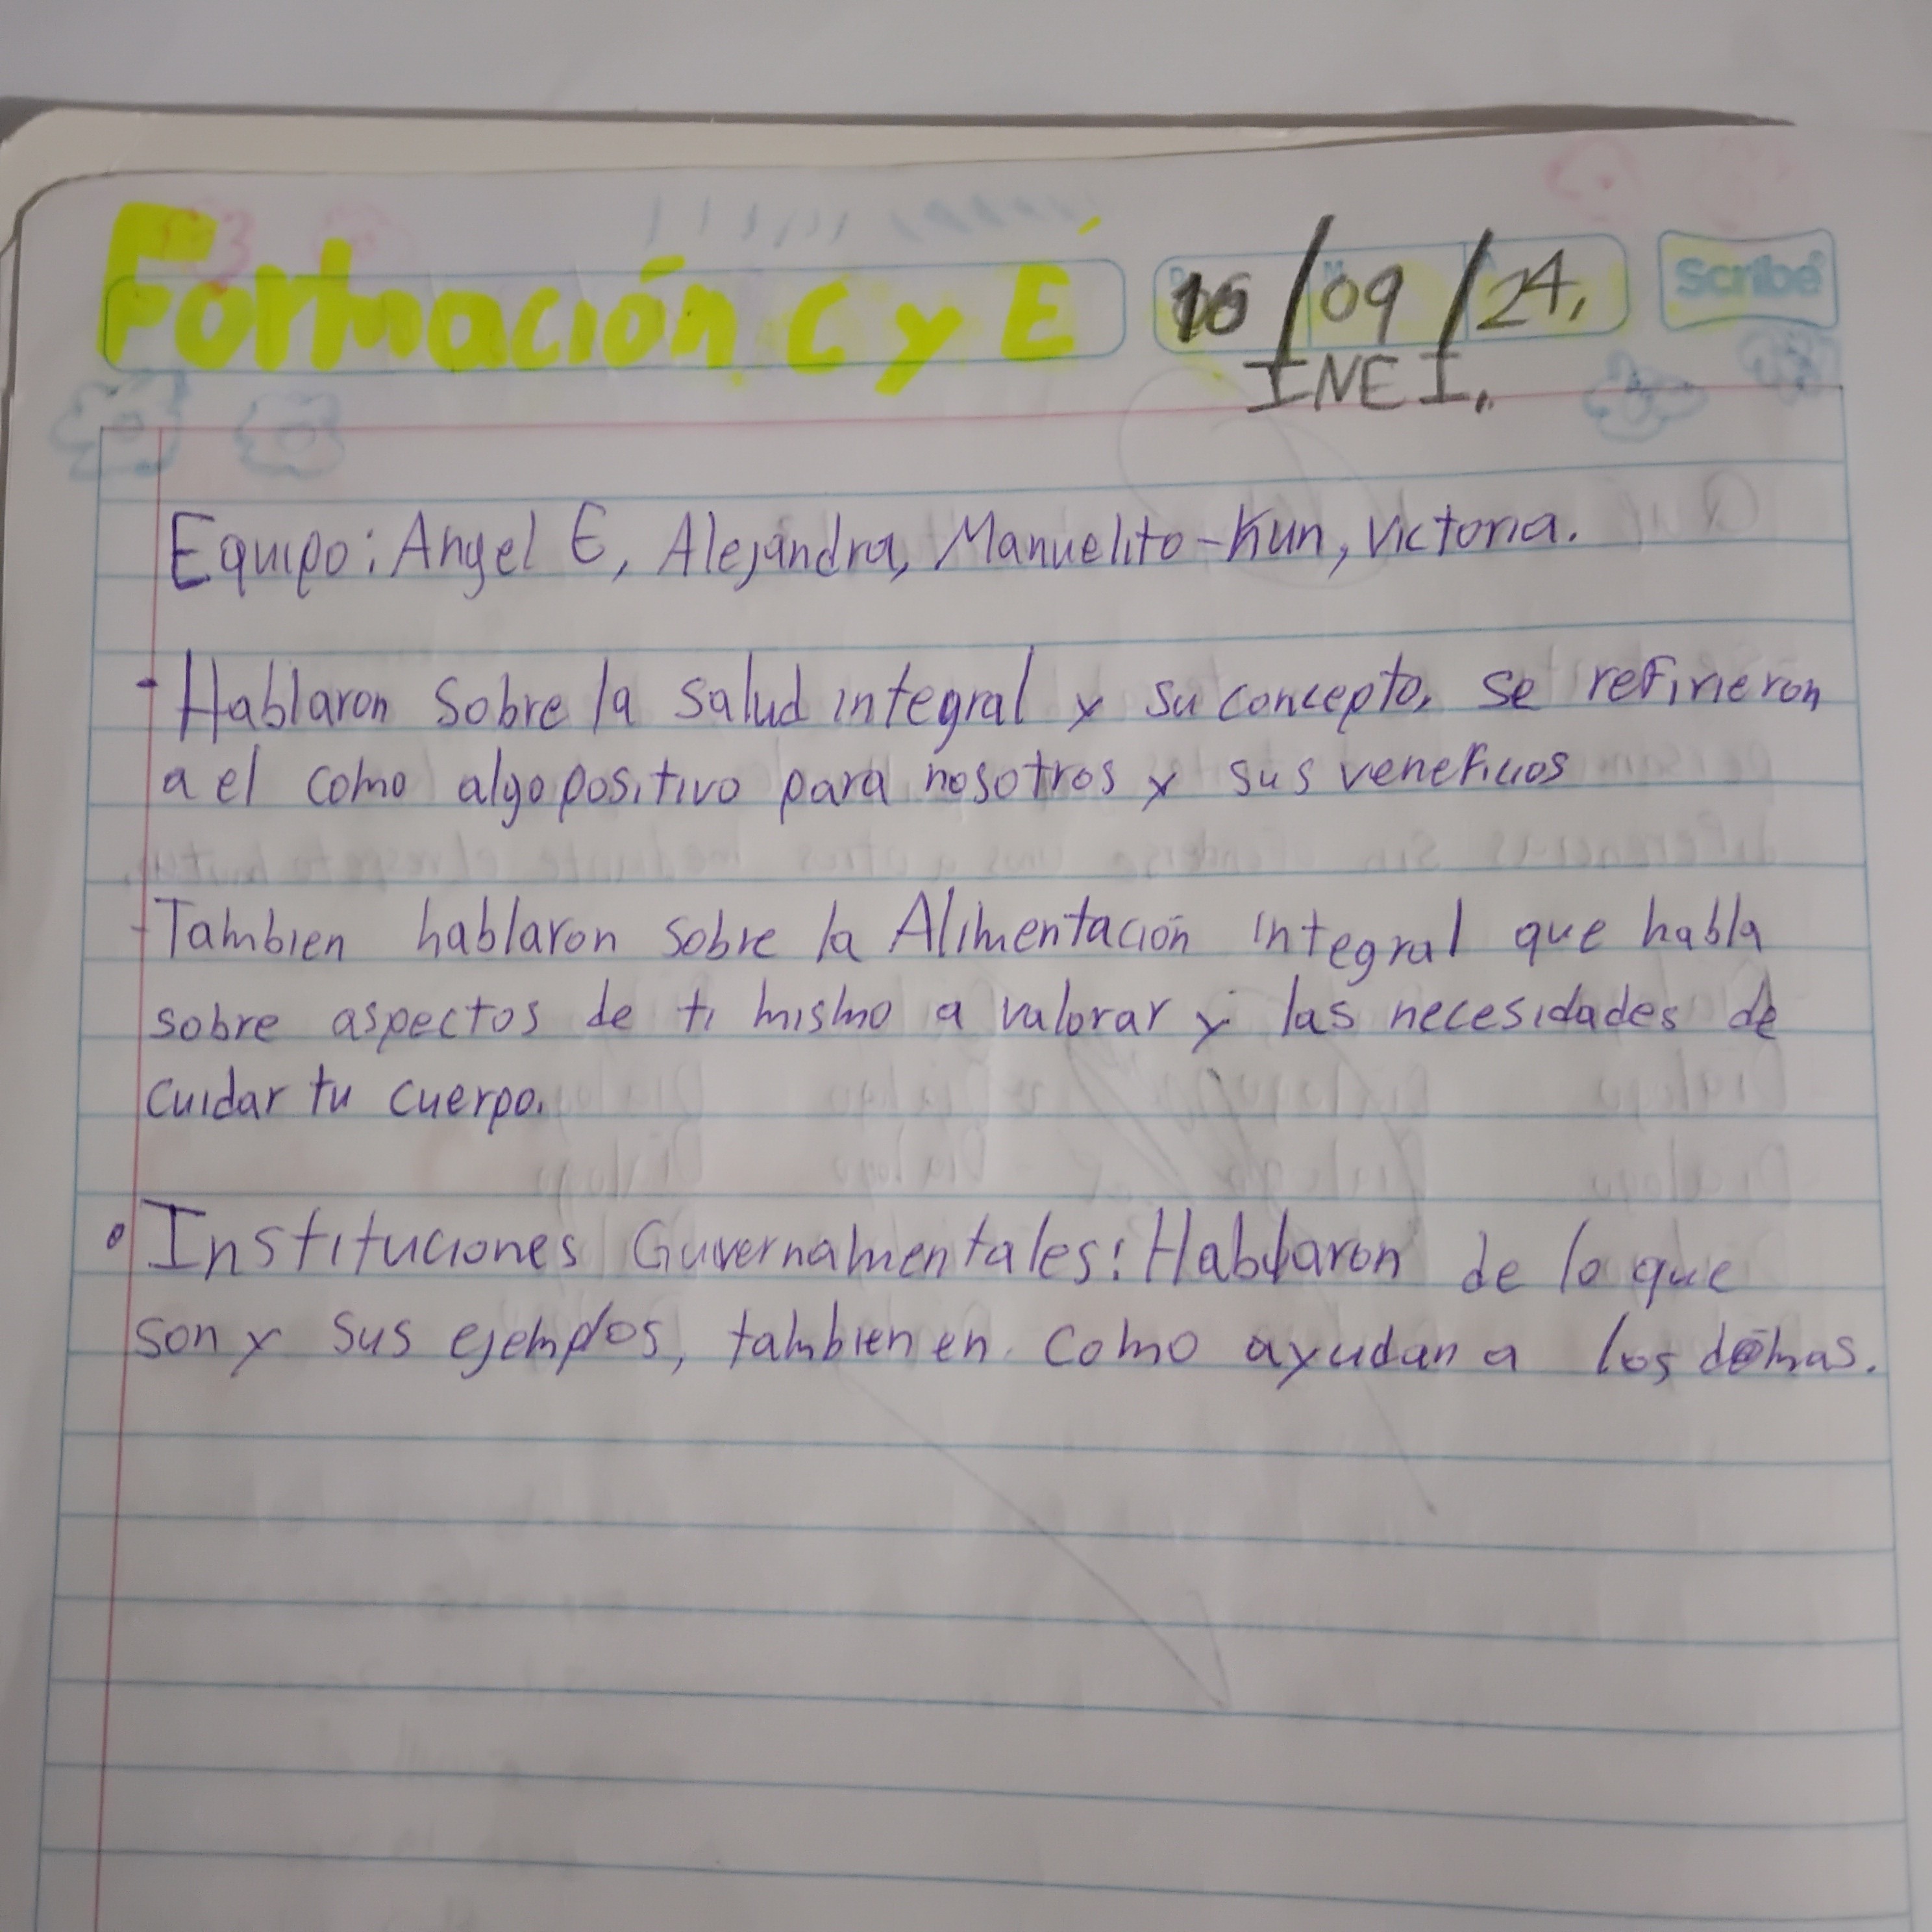 Formación C y É
10/09/24.
Scribe
INEI.
Equipo: Angel E, Alejandra, Manuelito-Kun, Victoria.
- Hablaron sobre la salud integral y su concepto, se refirieron
a el como algo positivo para nosotros y sus veneficios
- Tambien hablaron sobre la Alimentación integral que habla
sobre aspectos de ti mismo a valorar y las necesidades de
cuidar tu cuerpo.
• Instituciones Guvernamentales: Hablaron de lo que
son y sus ejemplos, tambien en como ayudan a los demas.